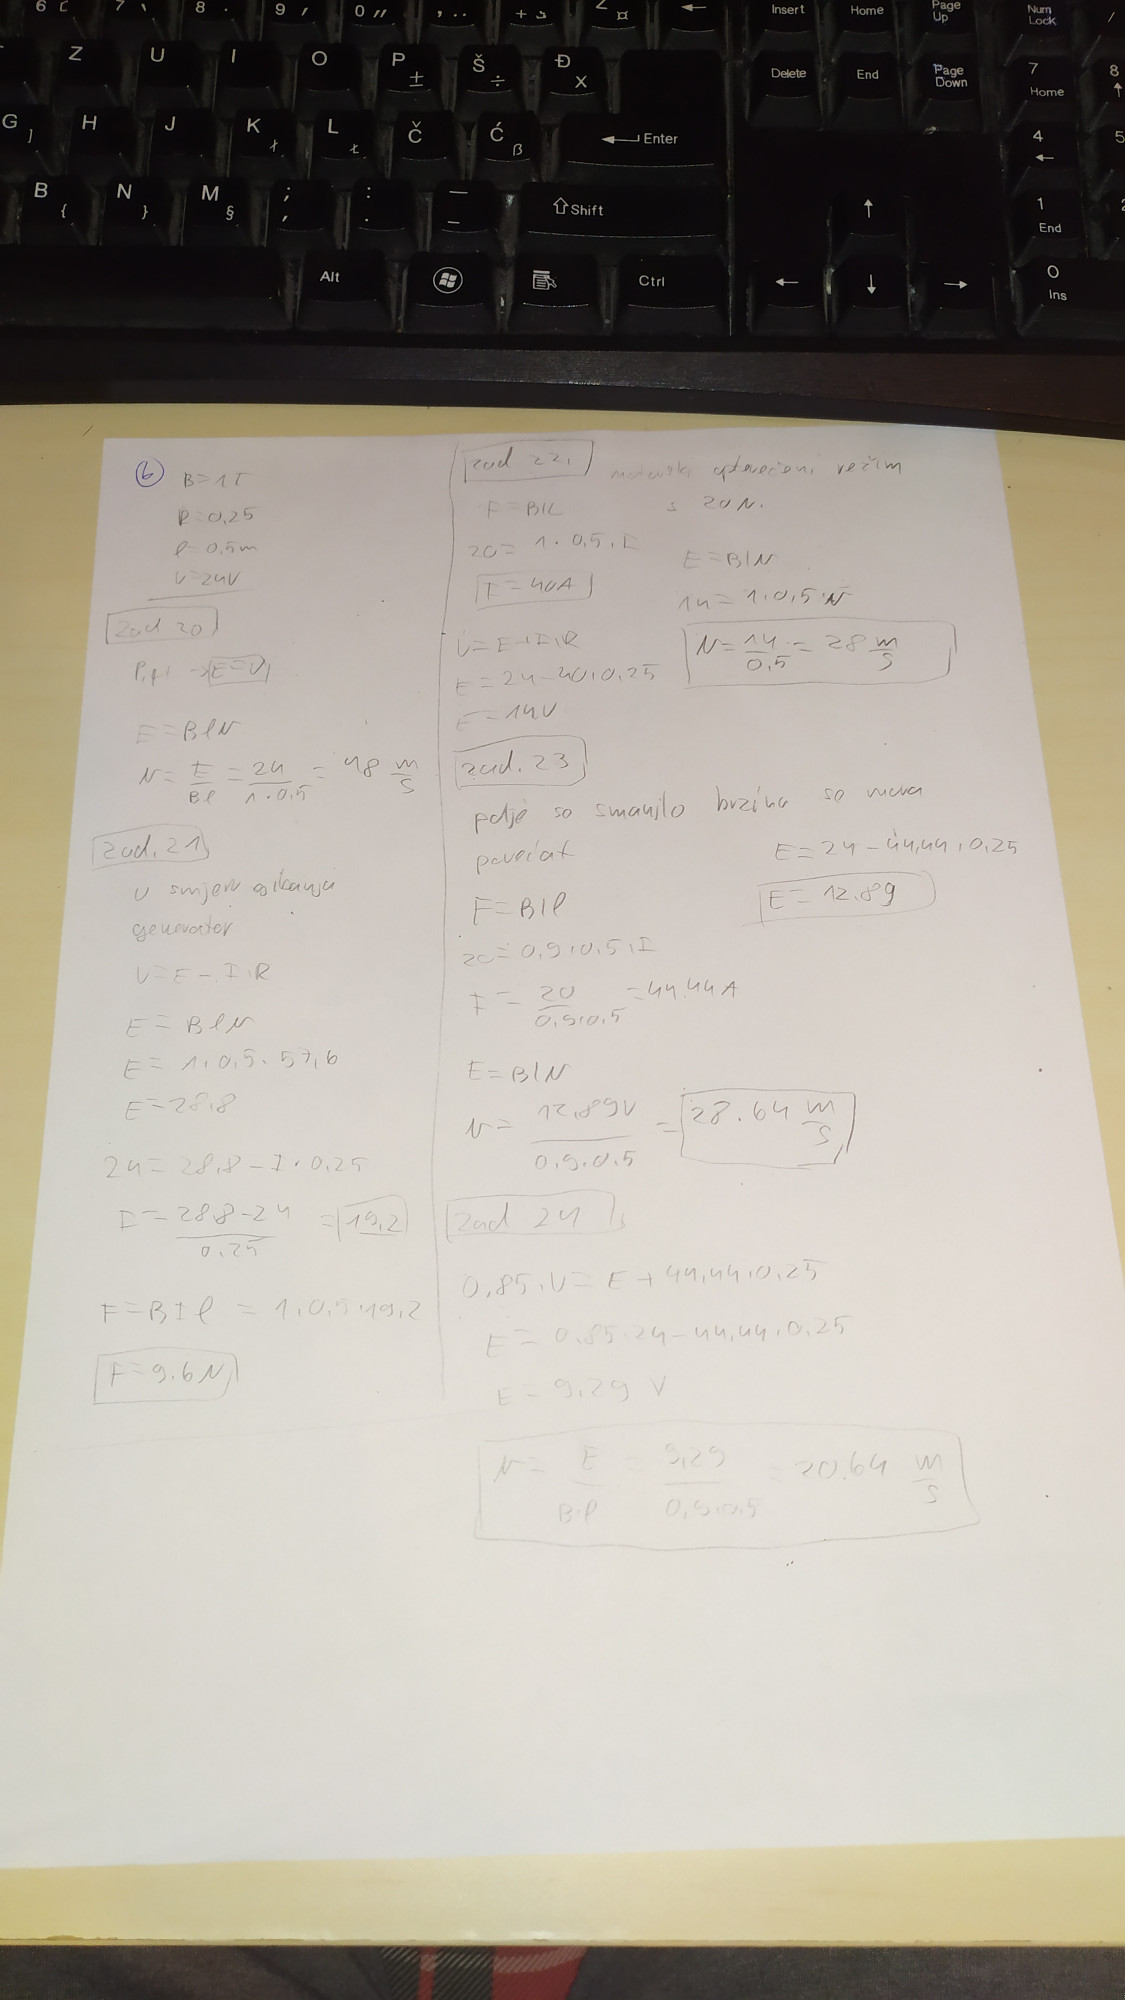 6 [ 7 \ 8 . 9 0 " + ¤ ← Insert Home Page Up Num Lock /
Z U I O P ± Š ÷ Đ X Delete End Page Down 7 Home 8 ↑
G ] H J K ł L Ł Č Ć ß ← Enter 4 ← 5
B { N } M § ; , : . — _ ⇧ Shift ↑ 1 End
Alt Ctrl ← ↓ → 0 Ins
6
B=1T
R=0,25
l=0,5m
U=24V
zad 20
E=U
E=Blv
v=E/Bl=24/1·0.5=48 m/s
zad. 21
U smjeru gibanja
generator
U=E-I·R
E=Blv
E=1·0,5·57,6
E=28,8
24=28,8-I·0.25
I=28,8-24/0.25=19,2
F=BIl=1·0,5·19,2
F=9.6N
zad 22.
motorski opterećeni režim
s 20N.
F=BIl
20=1·0,5·I
I=40A
U=E+I·R
E=24-40·0,25
E=14V
E=Blv
14=1·0,5·v
v=14/0,5=28 m/s
zad. 23
polje so smanjilo brzina so mora
povećat
F=BIl
20=0,9·0,5·I
I=20/0,9·0,5=44.44A
E=24-44,44·0,25
E=12.89
E=Blv
v=12,89V/0,9·0,5=28.64 m/s
zad 24
0,85·U=E+44,44·0,25
E=0.85·24-44,44·0,25
E=9,29 V
v=E/B·l=9,29/0,9·0,5=20.64 m/s